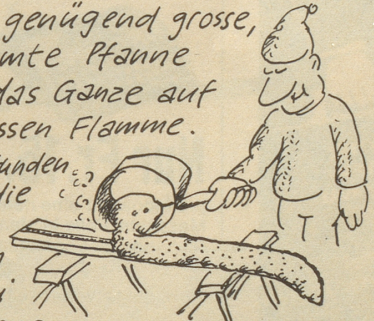 genügend grosse,
mte Pfanne
das Ganze auf
ssen Flamme.
unden
die